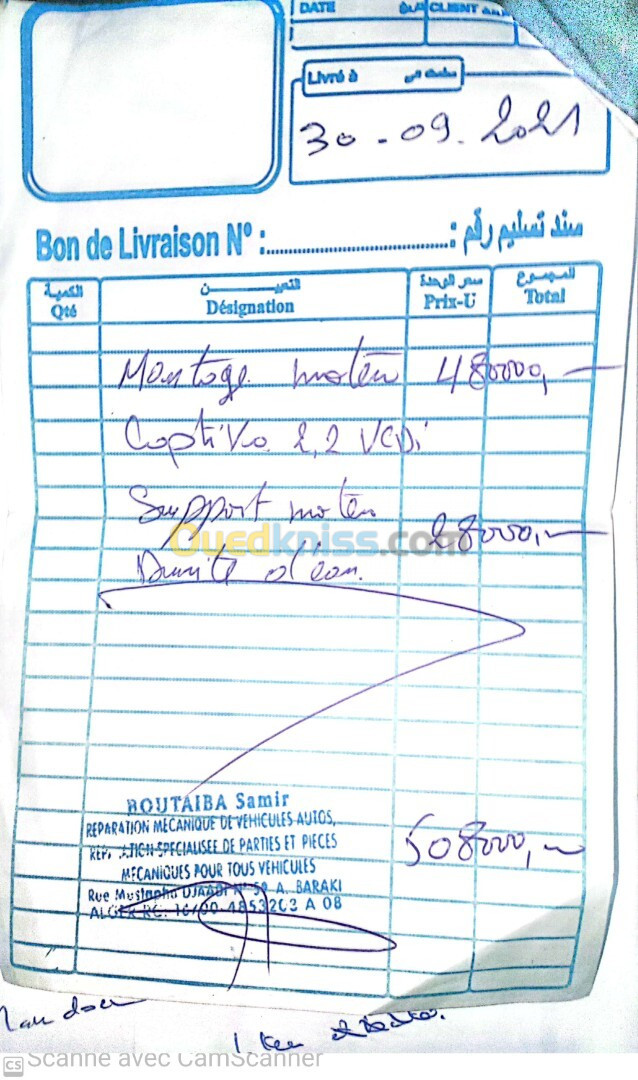 DATE CLIENT
Livré à سلمت الى
30-09.2021
Bon de Livraison N° :........................: سند تسليم رقم
الكمية التعيين سعر الوحدة المجموع
Qté Désignation Prix-U Total
Montage moteur 480000,-
Captiva 2,2 VCDi
Support moteur
Ouedkniss.com
28000,-
Durite d'eau.
BOUTAIBA Samir
REPARATION MECANIQUE DE VEHICULES AUTOS,
SPECIALISEE DE PARTIES ET PIECES
MECANIQUES POUR TOUS VEHICULES
508000,-
Rue Mustapha N° 59 A. BARAKI
ALGER RC: 16/00 A 08
CS Scanné avec CamScanner